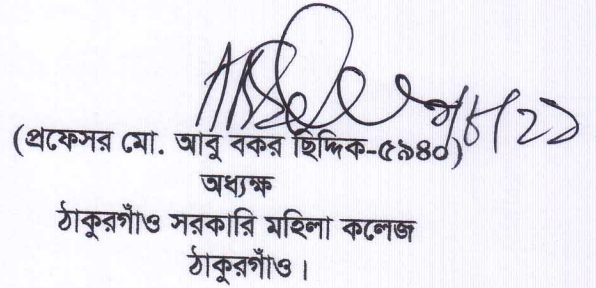 (প্রফেসর মো. আবু বকর ছিদ্দিক-৫৯৪০)
অধ্যক্ষ
ঠাকুরগাঁও সরকারি মহিলা কলেজ
ঠাকুরগাঁও।